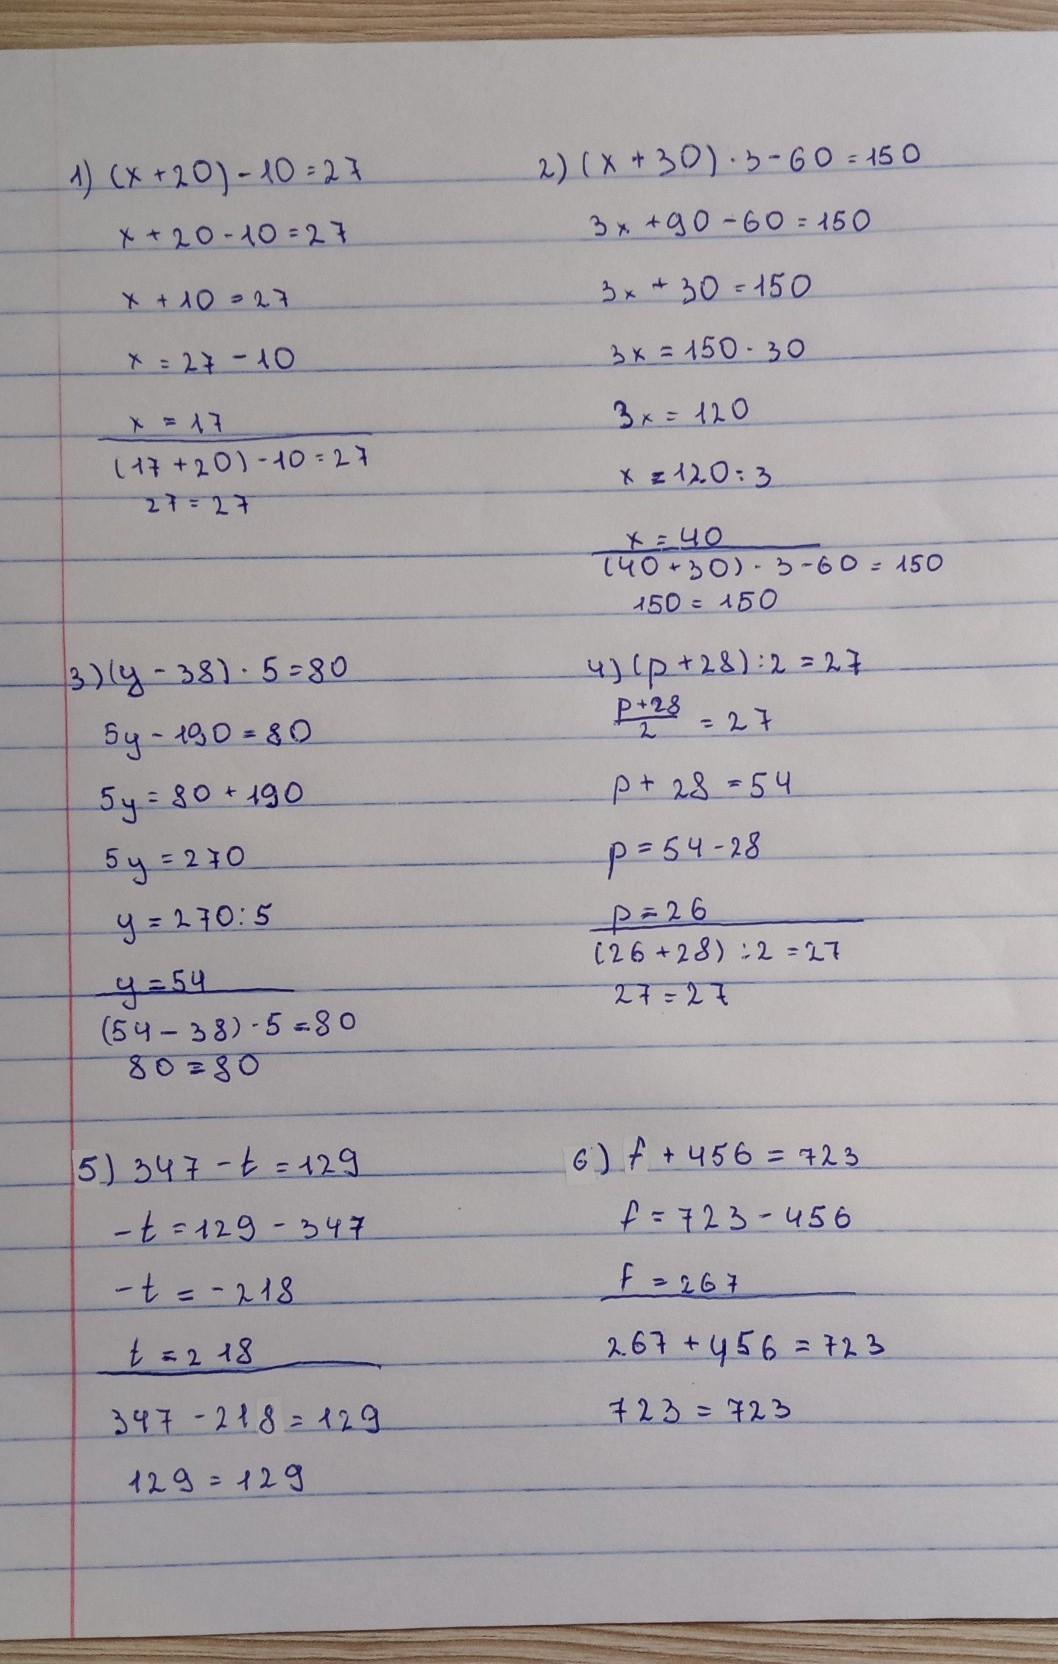 1) (x+20)-10=27
x+20-10=27
x+10=27
x=27-10
x=17
(17+20)-10=27
27=27
2) (x+30)·3-60=150
3x+90-60=150
3x+30=150
3x=150-30
3x=120
x=120:3
x=40
(40+30)·3-60=150
150=150
3) (y-38)·5=80
5y-190=80
5y=80+190
5y=270
y=270:5
y=54
(54-38)·5=80
80=80
4) (p+28):2=27
p+28/2=27
p+28=54
p=54-28
p=26
(26+28):2=27
27=27
5) 347-t=129
-t=129-347
-t=-218
t=218
347-218=129
129=129
6) f+456=723
f=723-456
f=267
267+456=723
723=723